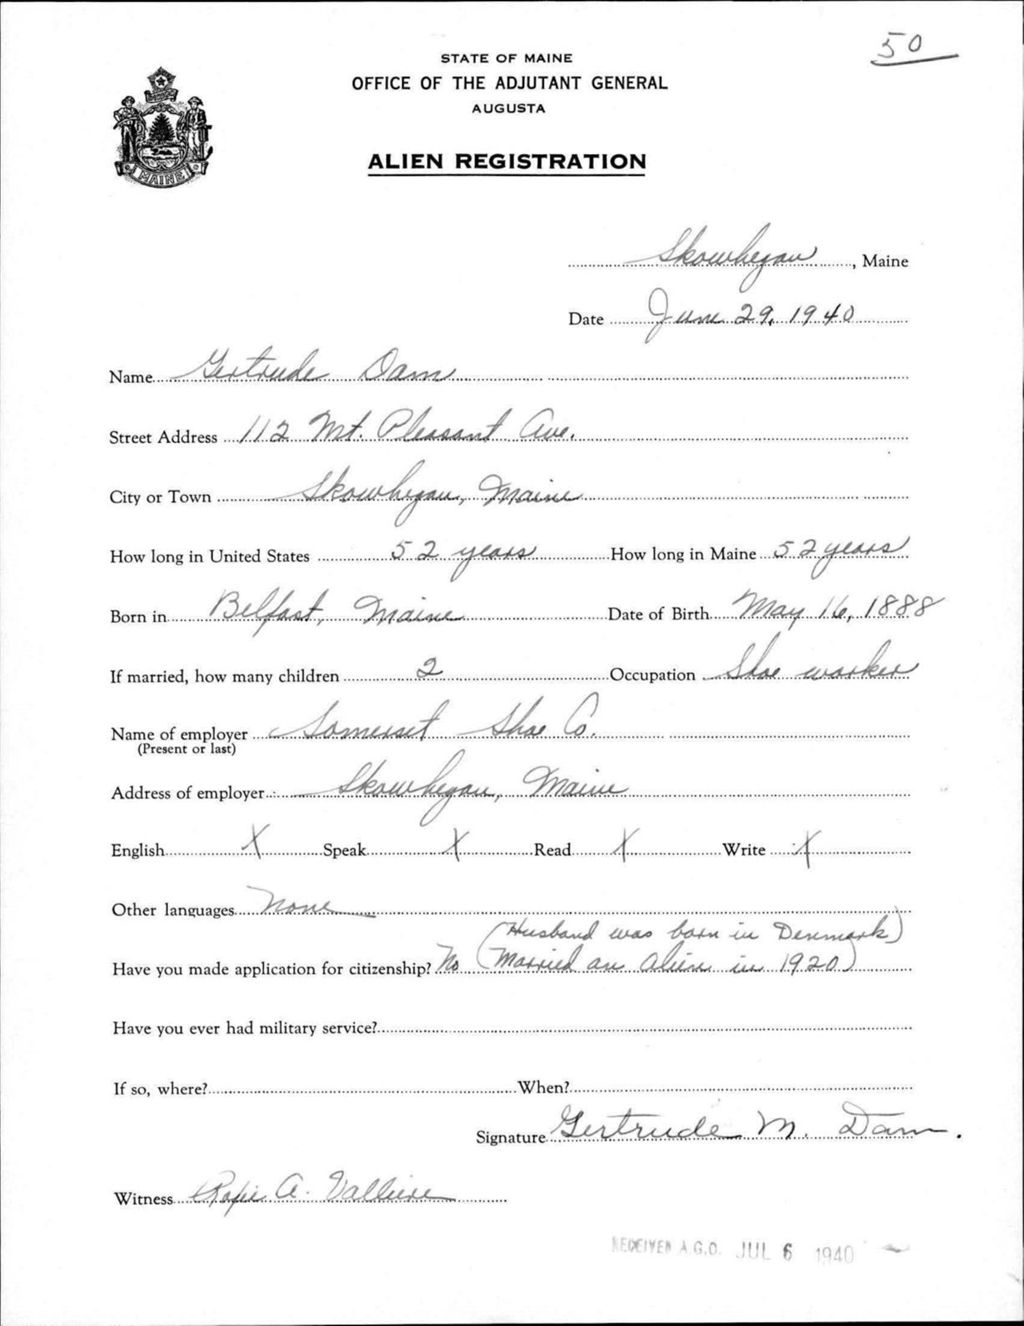 50
STATE OF MAINE
OFFICE OF THE ADJUTANT GENERAL
AUGUSTA
MAINE
ALIEN REGISTRATION
Skowhegan, Maine
Date June 29, 1940
Name Gertrude Dam
Street Address 112 Mt. Pleasant Ave.
City or Town Skowhegan, Maine
How long in United States 52 years How long in Maine 52 years
Born in Belfast, Maine Date of Birth May 16, 1888
If married, how many children 2 Occupation Shoe worker
Name of employer Somerset Shoe Co.
(Present or last)
Address of employer Skowhegan, Maine
English X Speak X Read X Write X
Other languages None
(Husband was born in Denmark)
Have you made application for citizenship? No (Married an alien in 1920)
Have you ever had military service?
If so, where? When?
Signature Gertrude M. Dam.
Witness A. Valliere
RECEIVED A.G.O. JUL 6 1940